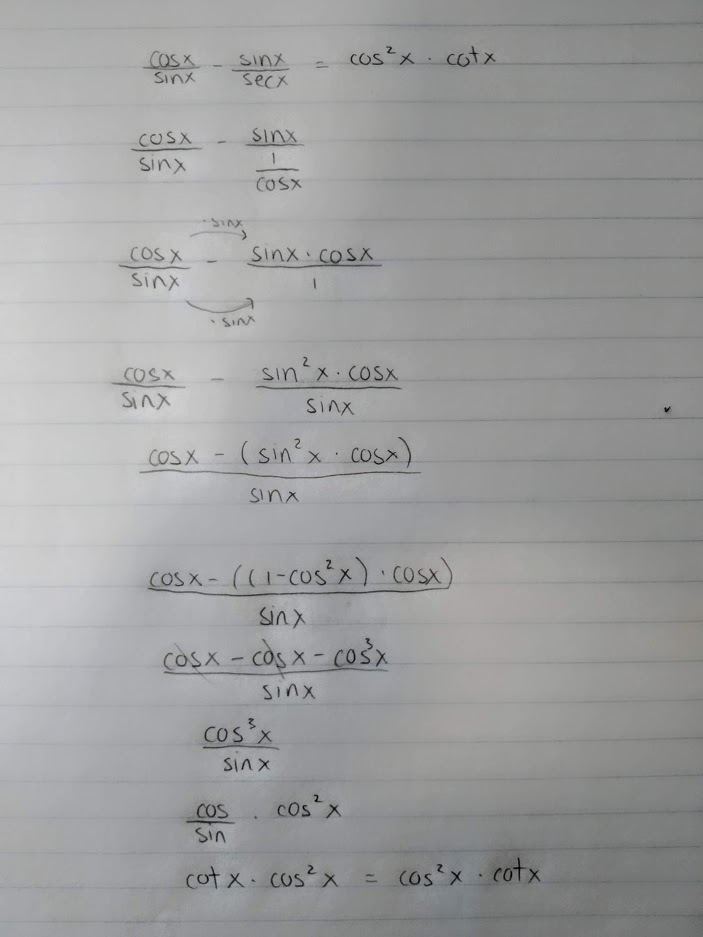 cosx/sinx - sinx/secx = cos²x · cotx
cosx/sinx - sinx/(1/cosx)
· sinx
cosx/sinx - (sinx · cosx)/1
· sinx
cosx/sinx - (sin²x · cosx)/sinx
(cosx - (sin²x · cosx))/sinx
(cosx - ((1-cos²x) · cosx))/sinx
(cosx - cosx - cos³x)/sinx
cos³x/sinx
cos/sin · cos²x
cotx · cos²x = cos²x · cotx